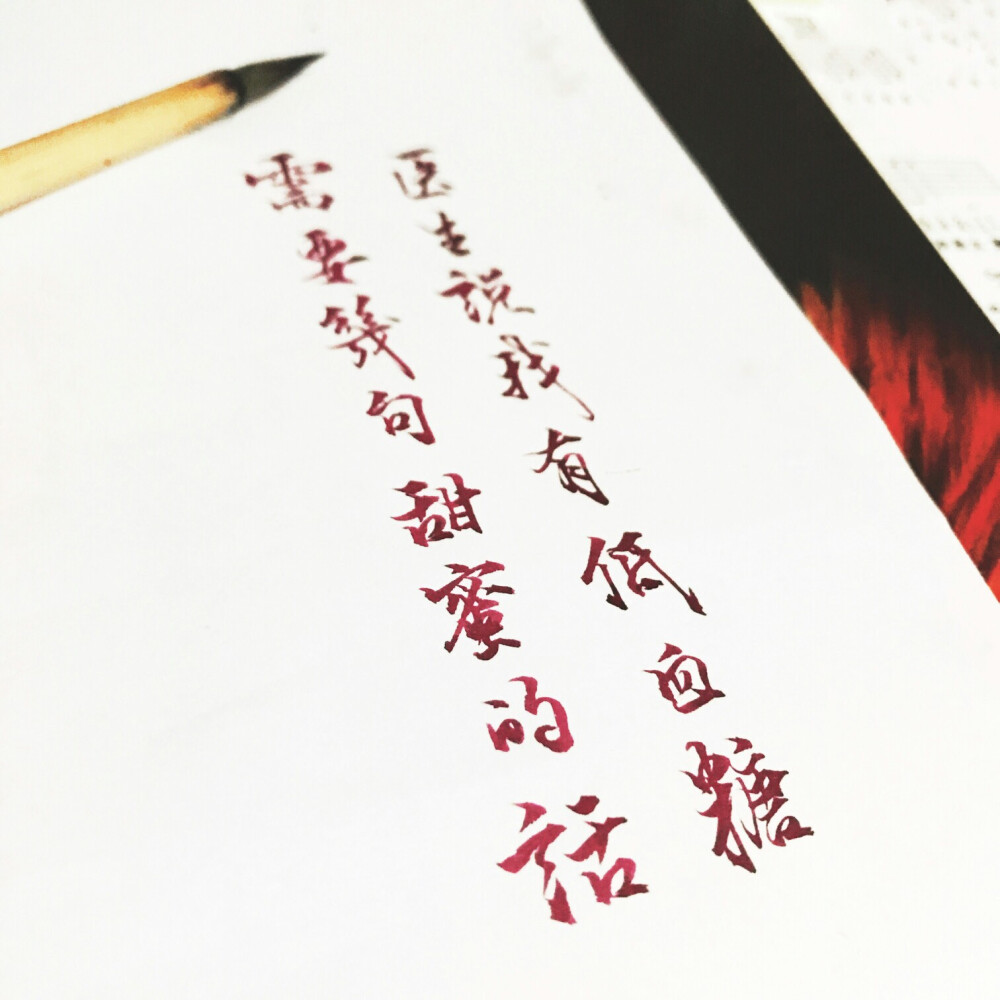 医生說我有低血糖
需要幾句甜蜜的話